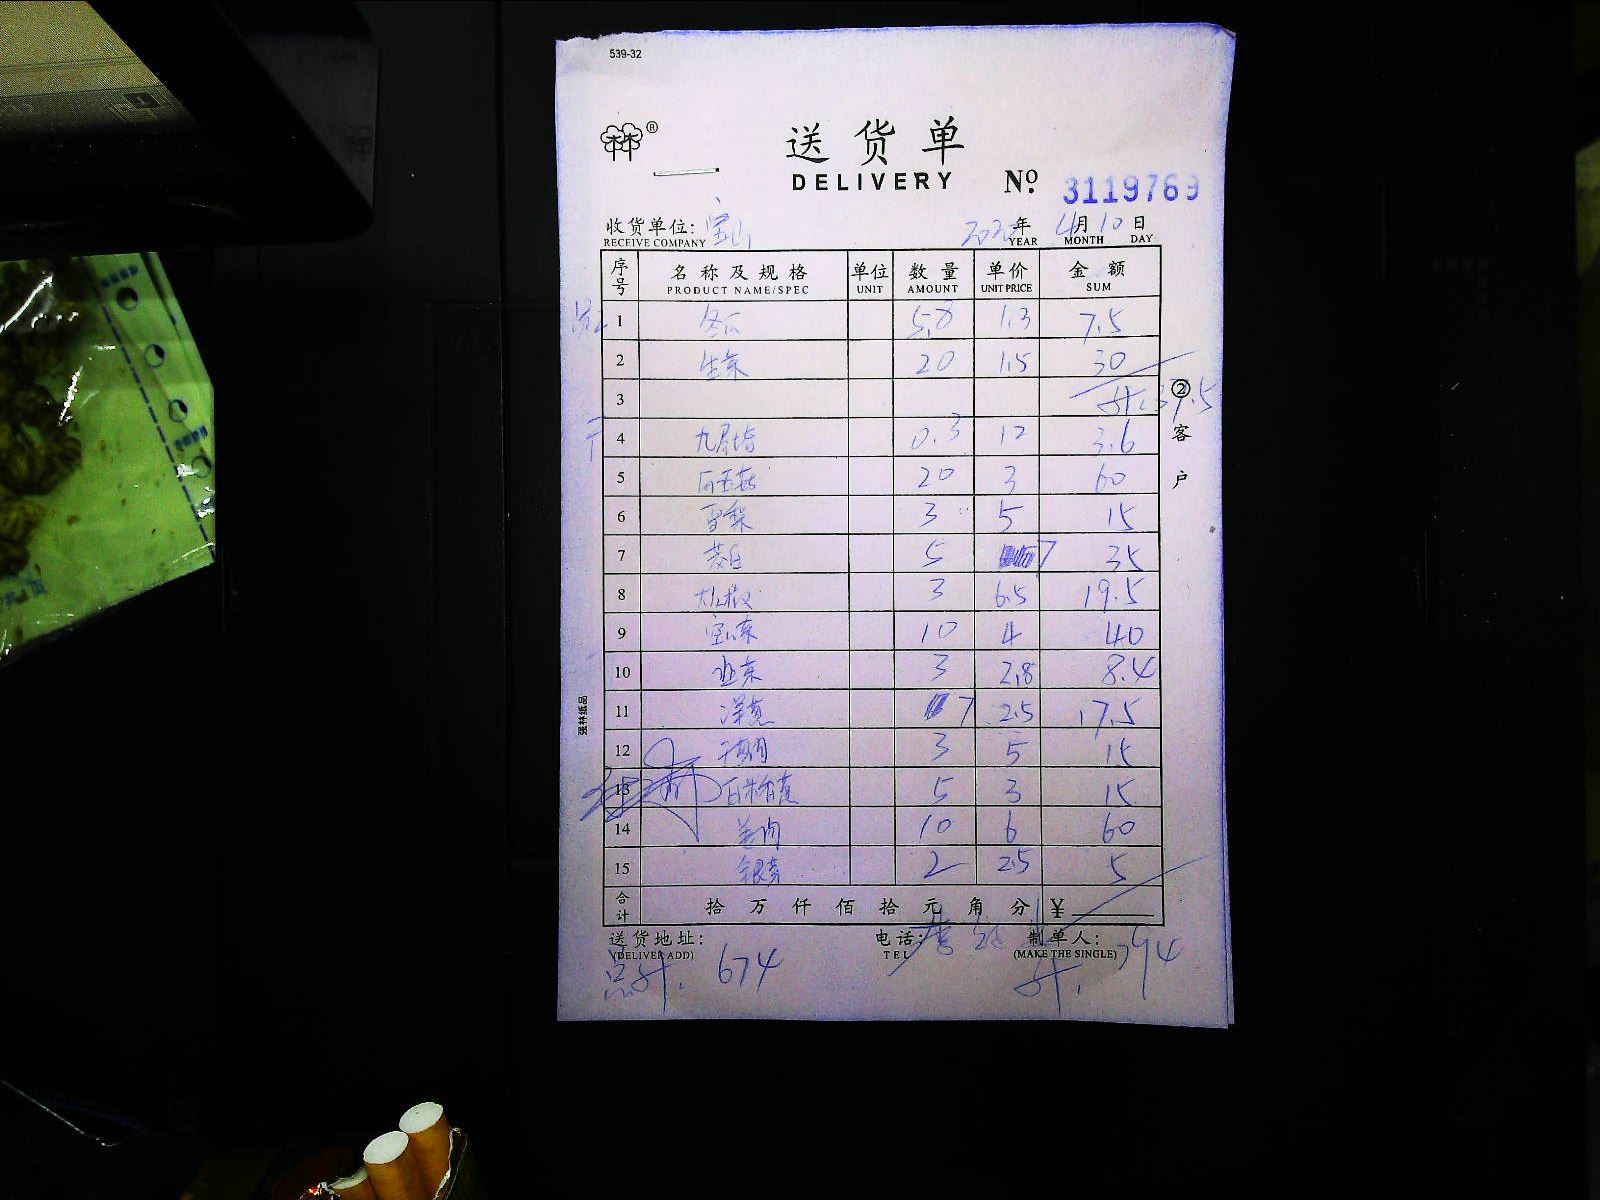 539-32
®
送货单
DELIVERY
Nº 3119769
收货单位: 宝山 年 4月10日
RECEIVE COMPANY YEAR MONTH DAY
序号 名称及规格 单位 数量 单价 金额
PRODUCT NAME/SPEC UNIT AMOUNT UNIT PRICE SUM
1 冬瓜 5.8 1.3 7.5
2 生菜 20 1.5 30
3 37.5
4 九层塔 0.3 12 3.6
5 20 3 60
6 雪梨 3 5 15
7 茭白 5 7 35
8 3 6.5 19.5
9 10 4 40
10 韭菜 3 2.8 8.4
11 洋葱 7 2.5 17.5
12 3 5 15
13 5 3 15
14 10 6 60
15 2 2.5 5
合计 拾万仟佰拾元角分 ¥
送货地址: 电话: 制单人:
(DELIVER ADD) TEL (MAKE THE SINGLE)
674
②客户
强林纸品